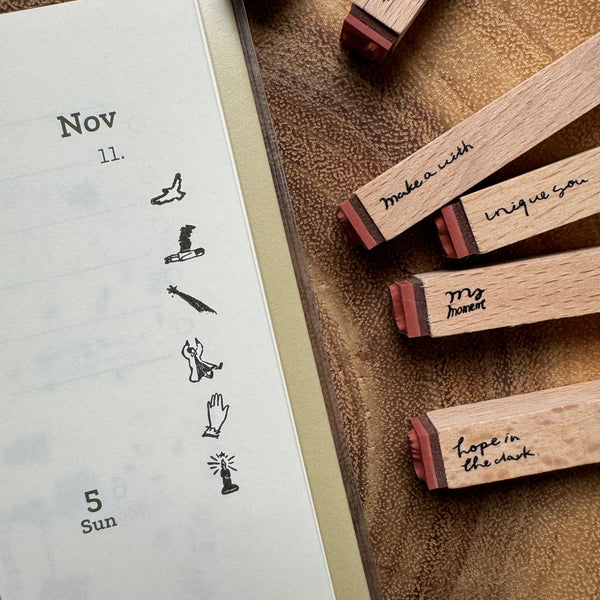 Nov
11.
5
Sun
make a with
unique you
my
moment
hope in
the dark.